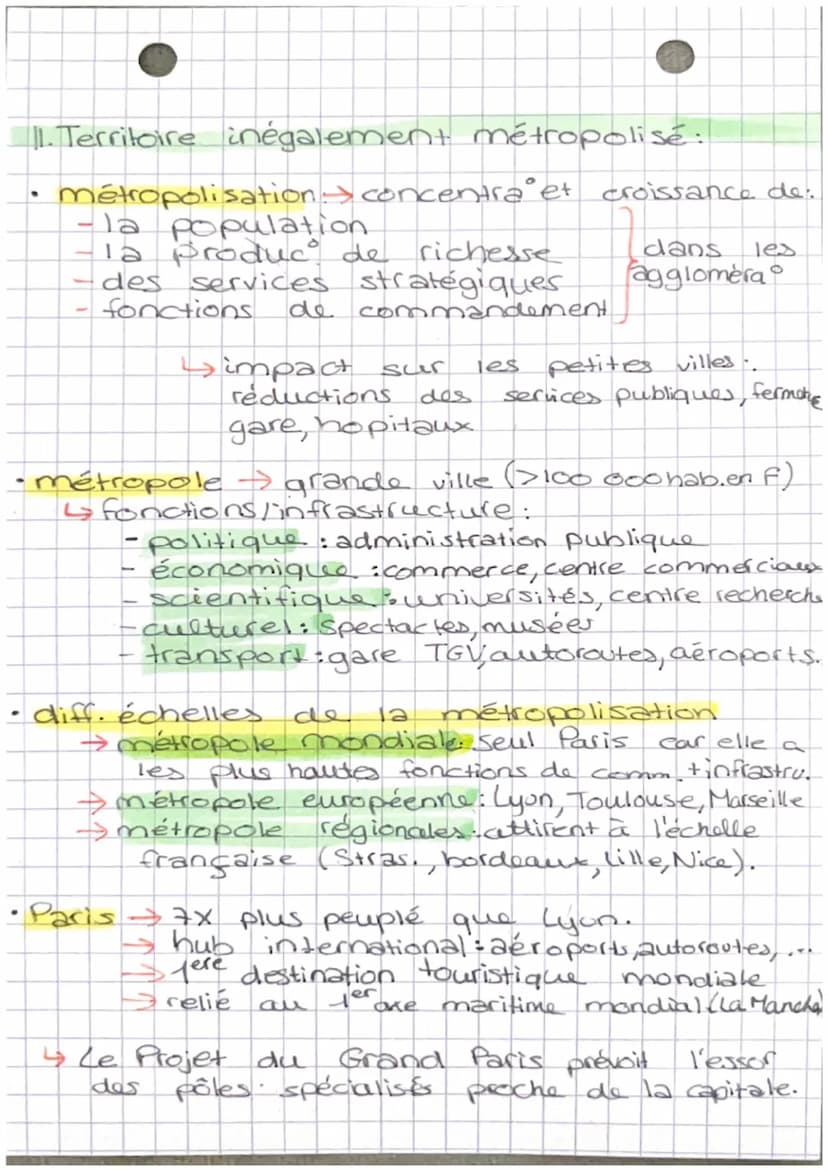 II. Territoire inégalement métropolisé:
• métropolisation: → concentra° et croissance de:
- la population
- la produc° de richesse
- des services stratégiques
- fonctions de commandement
dans les
aggloméra°
↳ impact sur les petites villes:
réductions des services publiques, fermeture
gare, hopitaux
• métropole → grande ville (>100 000 hab. en F)
↳ fonctions/infrastructure:
- politique: administration publique
- économique: commerce, centre commerciaux
- scientifique: universités, centre recherche
- culturel: spectacles, musées
- transport: gare TGV, autoroutes, aéroports.
• diff. échelles de la métropolisation
→ métropole mondiale: seul Paris car elle a
les plus hautes fonctions de comm. + infrastru.
→ métropole européenne: Lyon, Toulouse, Marseille
→ métropole régionales: attirent à l'échelle
française (Stras., bordeaux, lille, Nice).
• Paris → 7x plus peuplé que Lyon.
→ hub international: aéroports, autoroutes, ...
→ 1ere destination touristique mondiale
→ relié au 1er axe maritime mondial (La Manche)
↳ Le Projet du Grand Paris prévoit l'essor
des pôles spécialisés proche de la capitale.